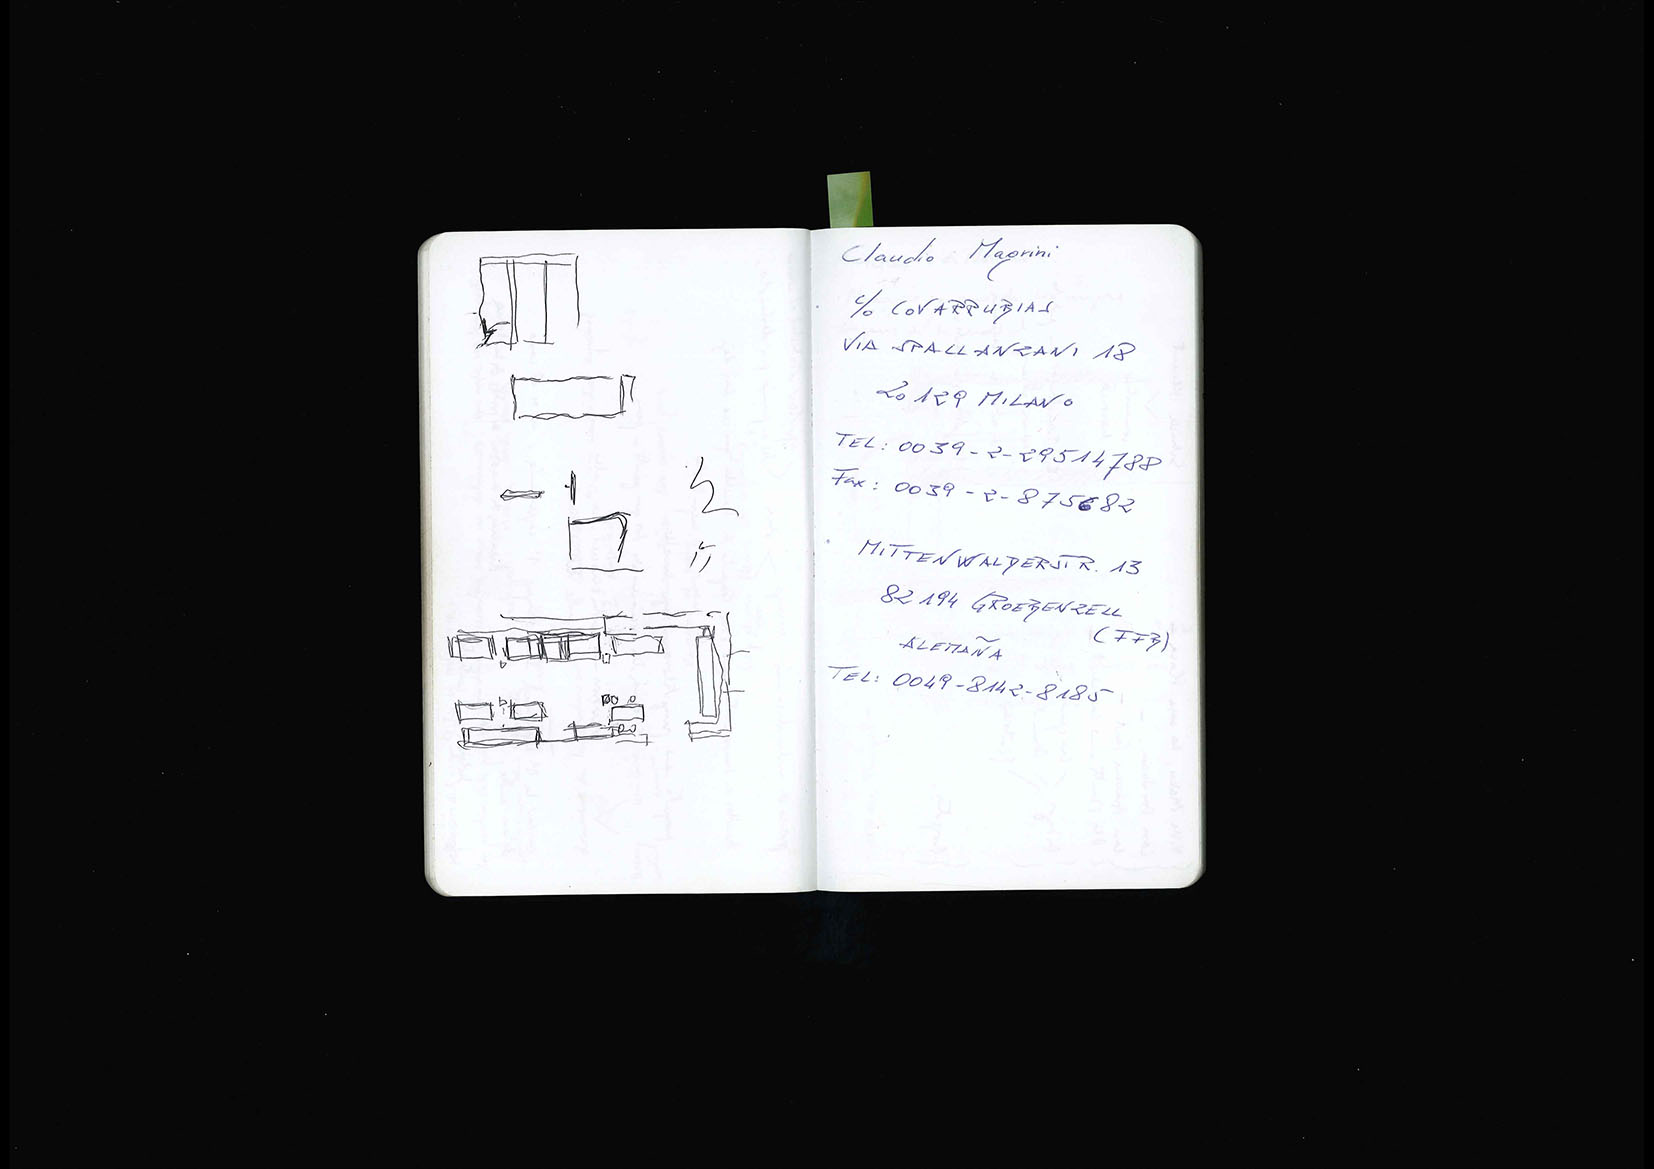 Claudio Magrini
c/o COVARRUBIAS
VIA SPALLANZANI 18
20129 MILANO
TEL: 0039-2-29514788
Fax: 0039-2-875682
MITTENWALDERSTR. 13
82194 GROEBENZELL
(FFB)
ALEMAÑA
TEL: 0049-8142-8185